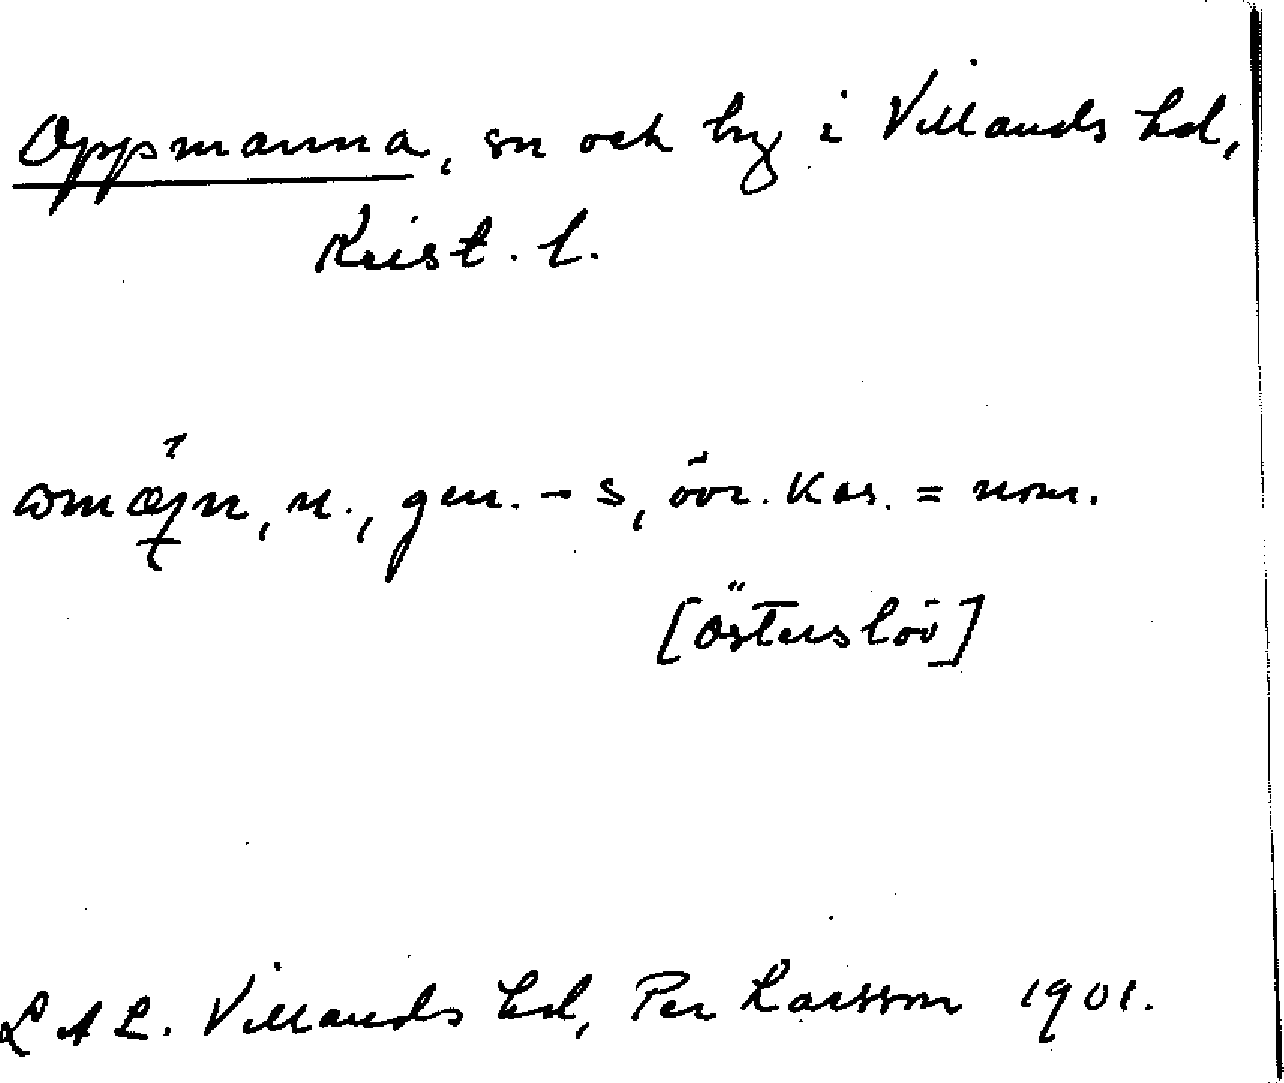 Oppmanna, sn och by i Villands hd,
Krist. l.
n., gen. -s, övr. kas. = nom.
[Österslöv]
L A L. Villands hd, Per Larsson 1901.